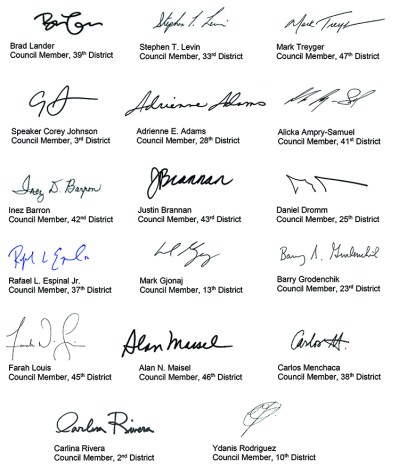 Brad Lander
Stephen T. Levin
Mark Treyger
Brad Lander
Council Member, 39th District
Stephen T. Levin
Council Member, 33rd District
Mark Treyger
Council Member, 47th District
Adrienne Adams
Speaker Corey Johnson
Council Member, 3rd District
Adrienne E. Adams
Council Member, 28th District
Alicka Ampry-Samuel
Council Member, 41st District
Inez D. Barron
JBrannan
Inez Barron
Council Member, 42nd District
Justin Brannan
Council Member, 43rd District
Daniel Dromm
Council Member, 25th District
Barry S. Grodenchik
Rafael L. Espinal Jr.
Council Member, 37th District
Mark Gjonaj
Council Member, 13th District
Barry Grodenchik
Council Member, 23rd District
Alan Maisel
Carlos M.
Farah Louis
Council Member, 45th District
Alan N. Maisel
Council Member, 46th District
Carlos Menchaca
Council Member, 38th District
Carlina Rivera
Carlina Rivera
Council Member, 2nd District
Ydanis Rodriguez
Council Member, 10th District